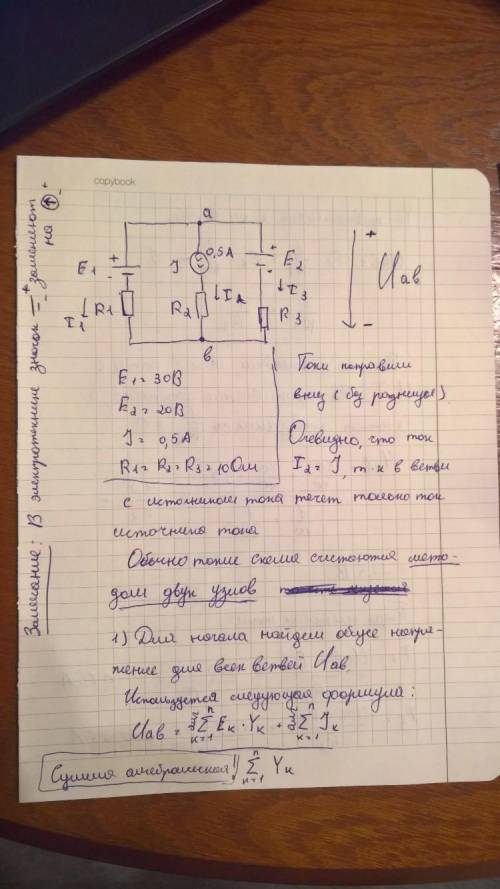 copybook
Замечание: В электротехнике значок заменяют на
+
-
a
+
-
E1
R1
I1
J
0,5A
R2
I2
+
-
E2
I3
R3
в
+
Uав
-
E1 = 30В
E2 = 20В
J = 0,5А
R1 = R2 = R3 = 10 Ом
Токи направили
вниз (без разницы).
Очевидно, что ток
I2 = J, т к в ветви
с источником тока течет только ток
источника тока
Обычно такие схемы считаются мето-
дом двух узлов
1) Для начала найдем общее напря-
жение для всех ветвей Uав.
Используется следующая формула:
Uав = алг∑ n k=1 Ek · Yk + алг∑ n k=1 Jk
Сумма алгебраическая!! ∑ n k=1 Yk